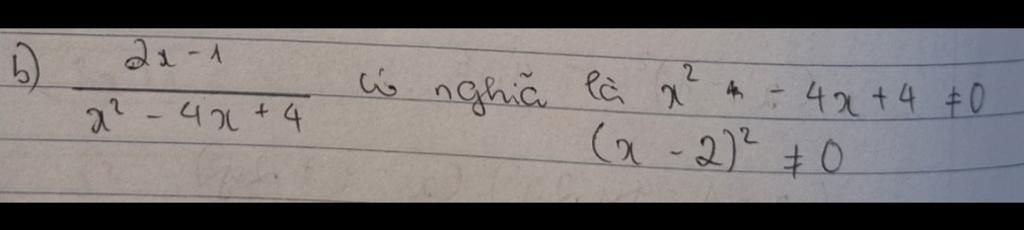 b) (2x - 1)/(x² - 4x + 4) có nghĩa là x² - 4x + 4 ≠ 0
(x - 2)² ≠ 0